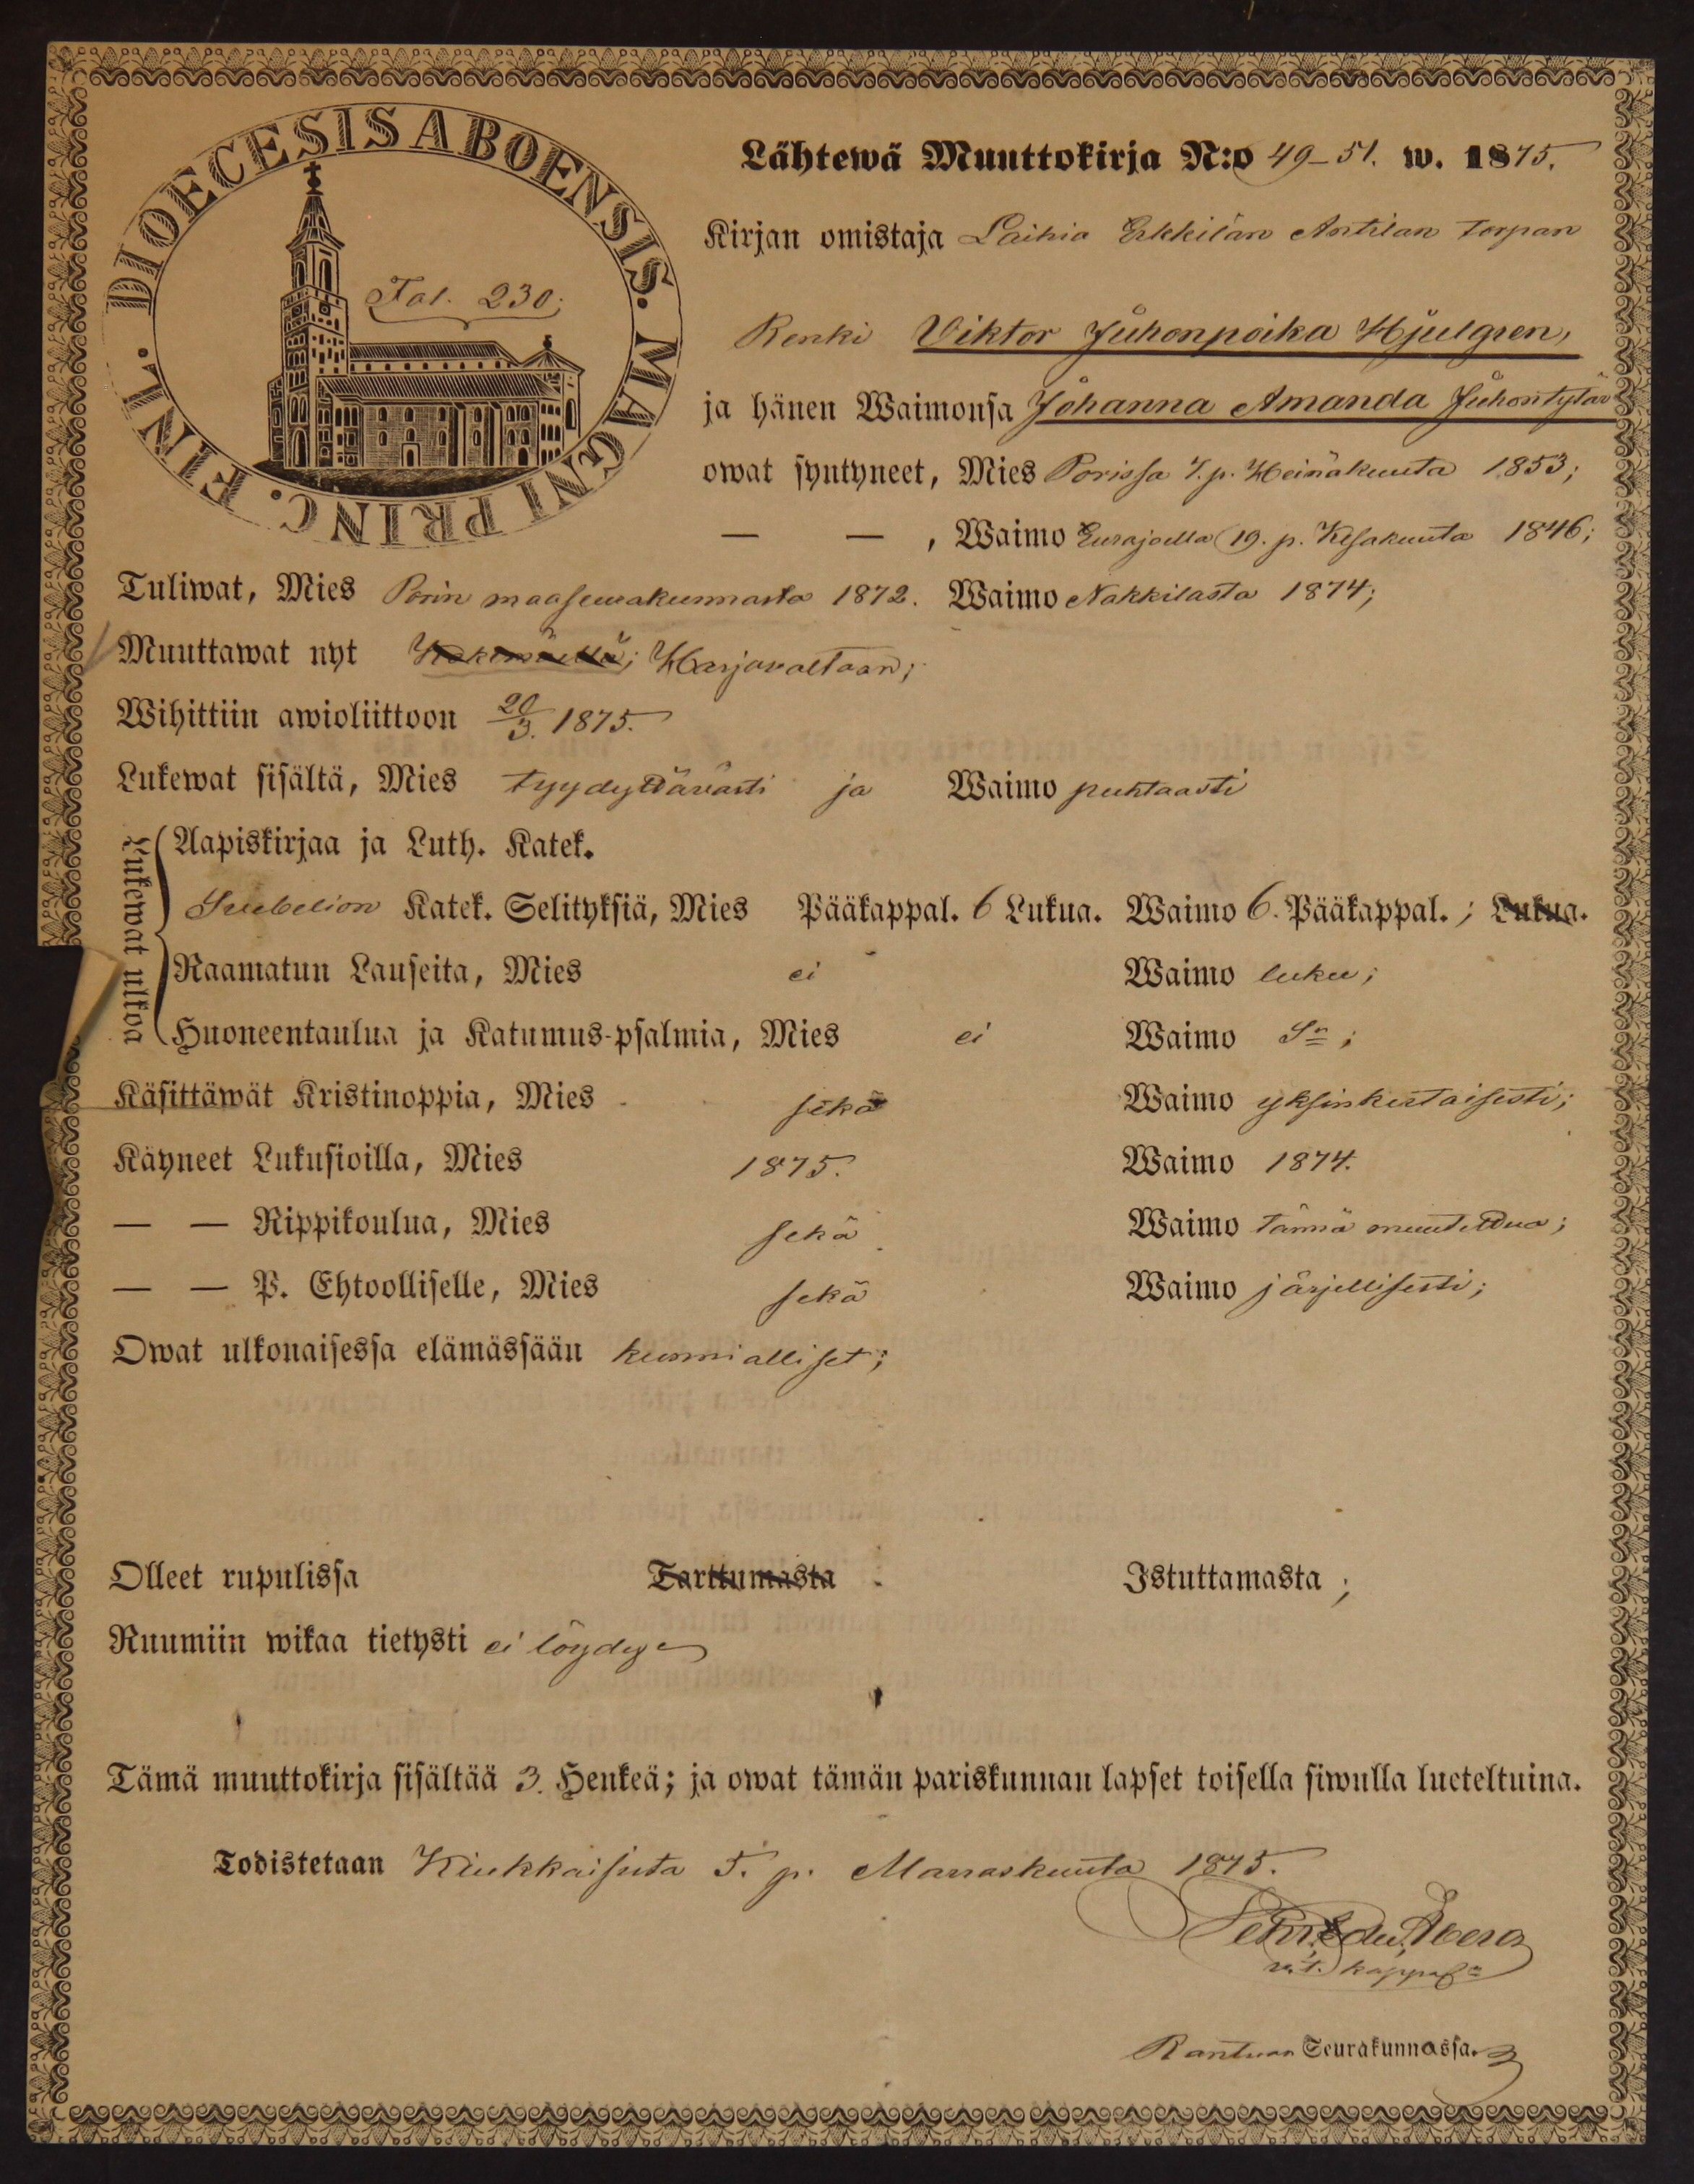 DIOECESIS ABOENSIS. MAGNI PRINC. FINL.
Fol. 230.
Lähtewä Muuttokirja N:o 49–51. w. 1875.
Kirjan omistaja Laihia Erkkilän Antilan torpan
Renki Viktor Juhonpoika Hjulgren,
ja hänen Waimonsa Johanna Amanda Juhontytär
owat syntyneet, Mies Porissa 7. p. Heinäkuuta 1853;
— — , Waimo Eurajoella 19. p. Kesäkuuta 1846;
Tuliwat, Mies Porin maaseurakunnasta 1872. Waimo Nakkilasta 1874;
Muuttawat nyt Harjavaltaan;
Wihittiin awioliittoon 20/3. 1875.
Lukewat sisältä, Mies tyydyttävästi ja Waimo puhtaasti
Lukewat ulkoa
Aapiskirjaa ja Luth. Katek.
Katek. Selityksiä, Mies Pääkappal. 6 Lukua. Waimo 6. Pääkappal. ; Lukua.
Raamatun Lauseita, Mies ei Waimo lukee;
Huoneentaulua ja Katumus-psalmia, Mies ei Waimo Sn ;
Käsittäwät Kristinoppia, Mies sekä Waimo yksinkertaisesti;
Käyneet Lukusioilla, Mies 1875. Waimo 1874.
— — Rippikoulua, Mies sekä Waimo tännä muutettua;
— — P. Ehtoolliselle, Mies sekä Waimo järjellisesti;
Owat ulkonaisessa elämässään kunnialliset;
Olleet rupulissa Tarttumasta Istuttamasta ;
Ruumiin wikaa tietysti ei löydy
Tämä muuttokirja sisältää 3. Henkeä; ja owat tämän pariskunnan lapset toisella siwulla lueteltuina.
Todistetaan Kiukkaisista 5. p. Marraskuuta 1875.
v.t. kappal:n
Seurakunnassa.